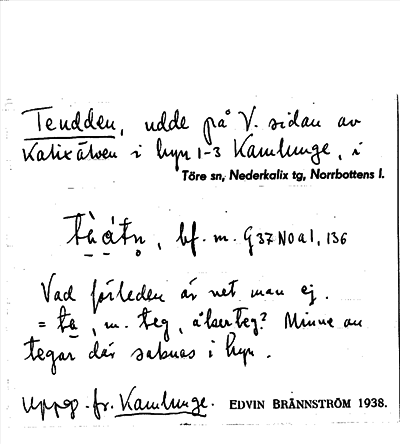 Teudden, udde på V. sidan av
Kalixälven i hyn 1-3 Kamlunge, i
Töre sn, Nederkalix tg, Norrbottens l.
bf. m. G37NOa1, 136
Vad förleden är vet man ej.
= , m. teg, åkerteg? Minne av
tegar där saknas i hyn.
Uppg. fr. Kamlunge. EDVIN BRÄNNSTRÖM 1938.